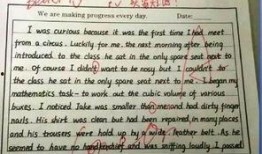 We are making progress every day. Date:
I was curious because it was the first time I had meet
from a circus. Luckily for me, the next morning after being
introduced to the class he sat in the only spare seat next to
me. Of course I didn't want to be nosy but I couldn't to
the class he sat in the only spare seat next to me. I began my
mathematics task - to work out the cubic volume of various
buxes. I noticed Jake was smaller than me and had dirty finger
nails. His shirt was clean but had been repaired in many places
and his trousers were hold up by a wide leather belt. As he
seemed to have no handkerchief and was sniffing loudly, I passed